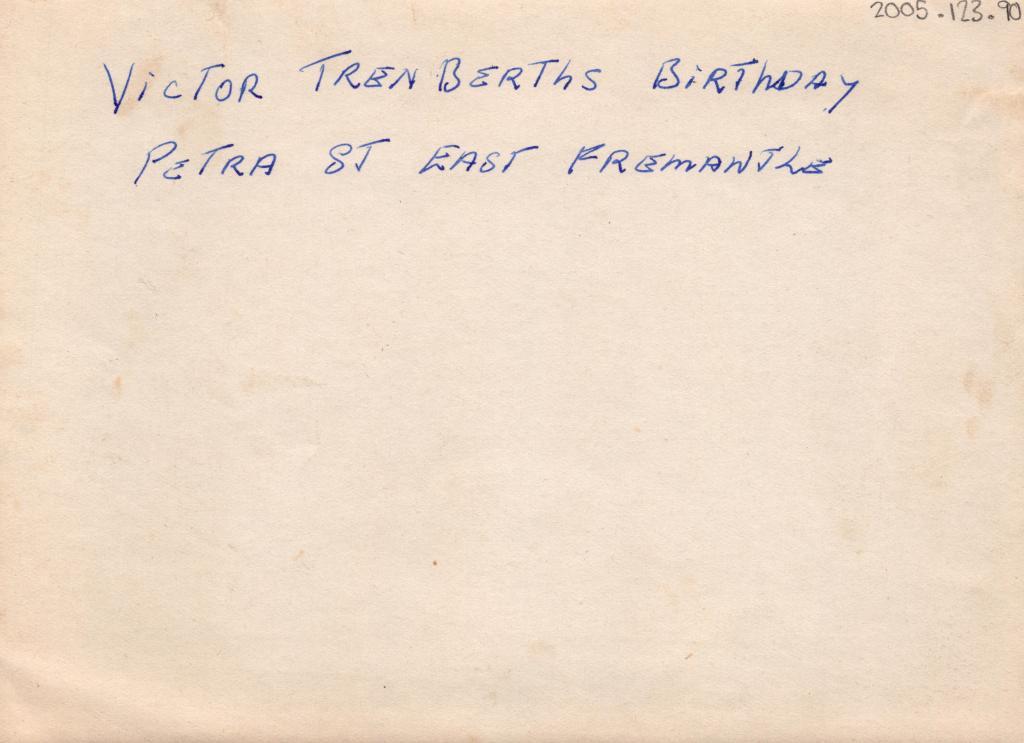 2005.123.90
VICTOR TRENBERTHS BIRTHDAY
PETRA ST EAST FREMANTLE